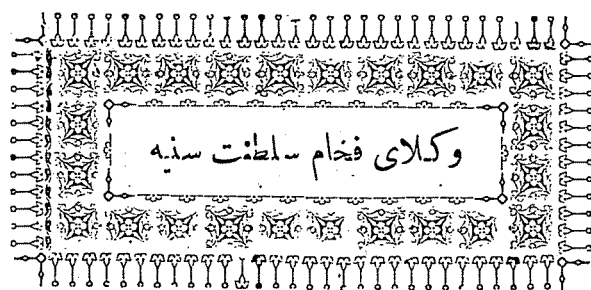 وکلای فخام سلطنت سنیه